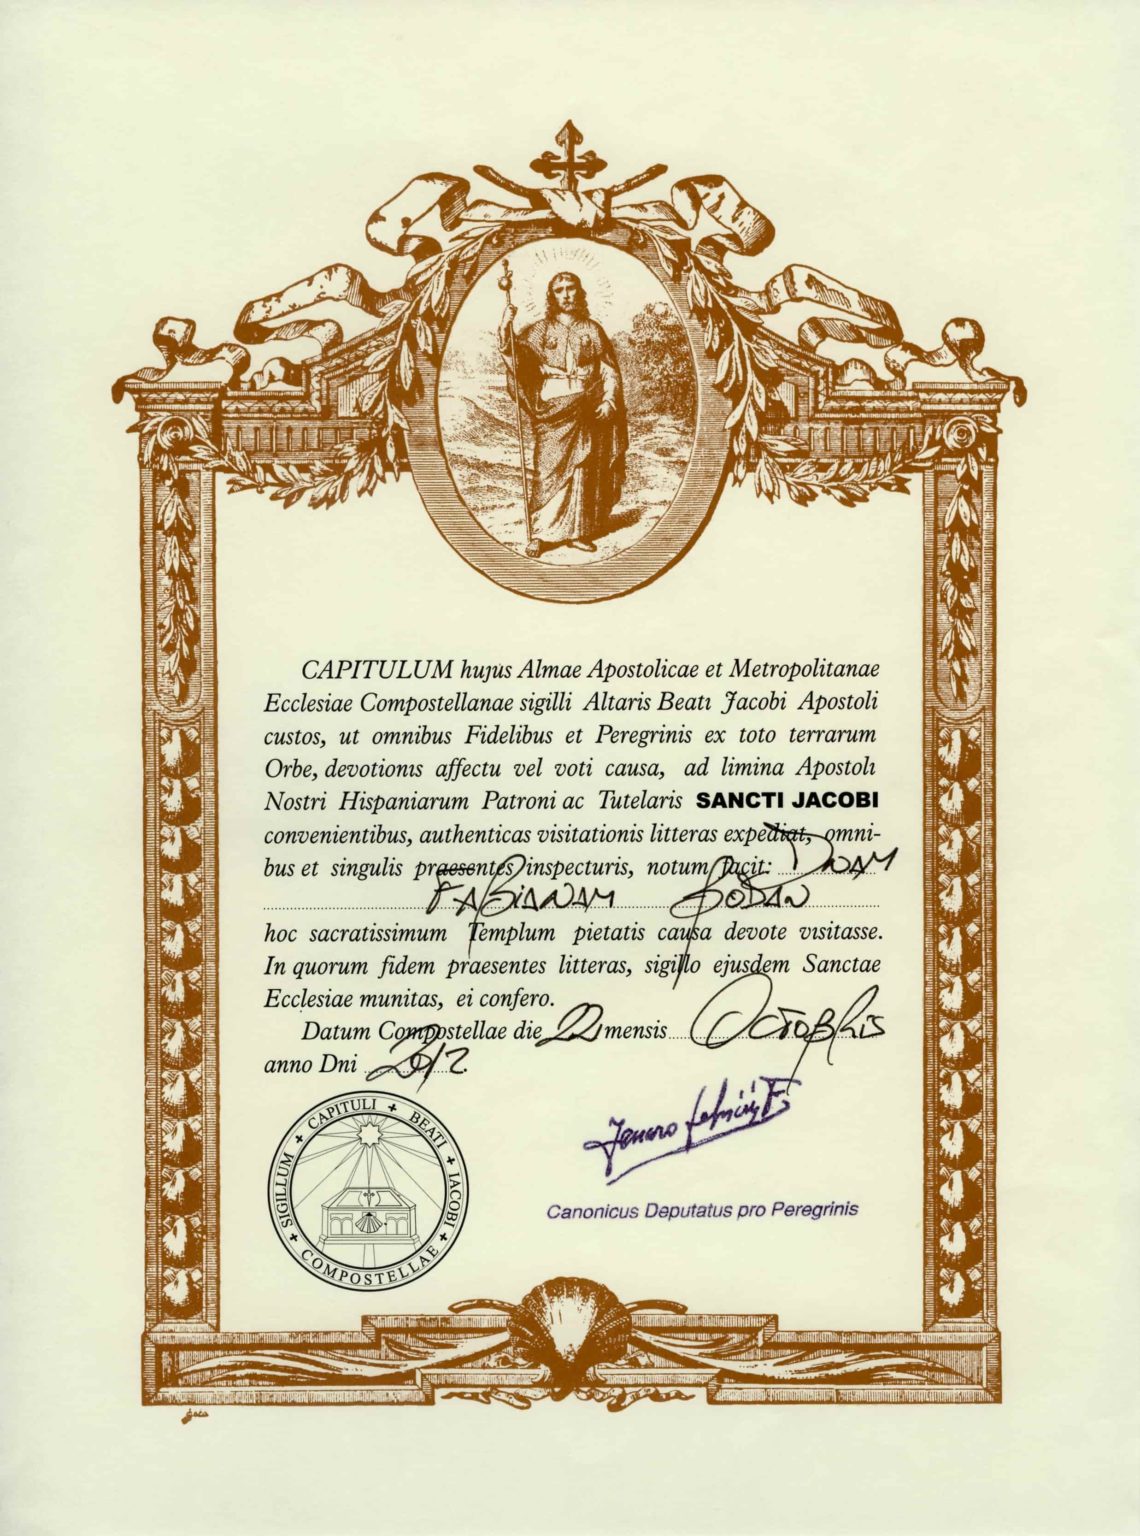 CAPITULUM hujus Almae Apostolicae et Metropolitanae
Ecclesiae Compostellanae sigilli Altaris Beati Jacobi Apostoli
custos, ut omnibus Fidelibus et Peregrinis ex toto terrarum
Orbe, devotionis affectu vel voti causa, ad limina Apostoli
Nostri Hispaniarum Patroni ac Tutelaris SANCTI JACOBI
convenientibus, authenticas visitationis litteras expediat, omni-
bus et singulis praesentes inspecturis, notum facit: Dnam
FABIANAM BODAN
hoc sacratissimum Templum pietatis causa devote visitasse.
In quorum fidem praesentes litteras, sigillo ejusdem Sanctae
Ecclesiae munitas, ei confero.
Datum Compostellae die 22 mensis OCTOBRIS
anno Dni 2012.
SIGILLUM + CAPITULI + BEATI + IACOBI + COMPOSTELLAE +
Canonicus Deputatus pro Peregrinis